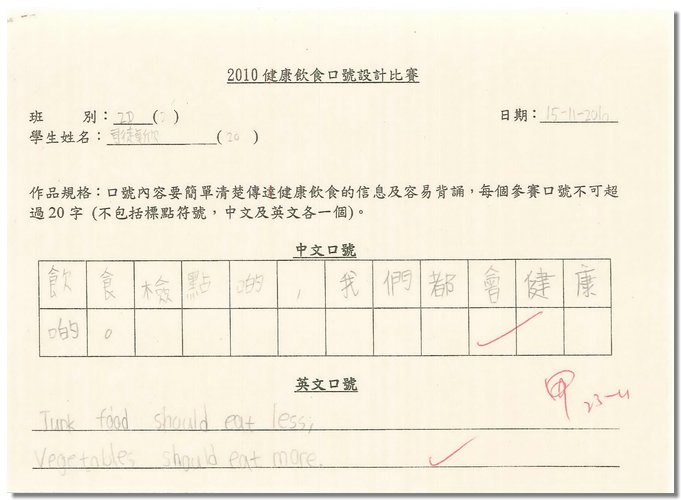 2010 健康飲食口號設計比賽
班 別：2D ( ) 日期：15-11-2010
學生姓名： ( 20 )
作品規格：口號內容要簡單清楚傳達健康飲食的信息及容易背誦，每個參賽口號不可超
過20字 (不包括標點符號，中文及英文各一個)。
中文口號
飲食檢點啲，我們都會健康
啲。
英文口號
甲 23-11
Junk food should eat less;
Vegetables should eat more.